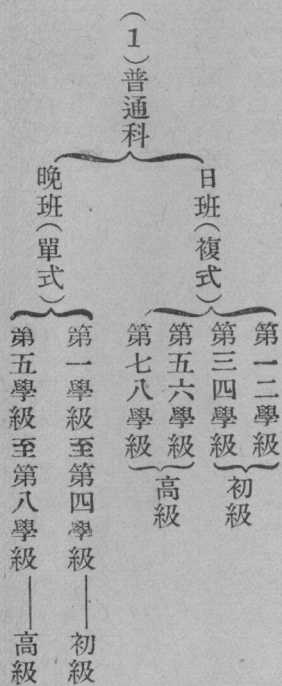 （1）普通科
日班（複式）
第一二學級
第三四學級
初級
第五六學級
第七八學級
高級
晚班（單式）
第一學級至第四學級——初級
第五學級至第八學級——高級